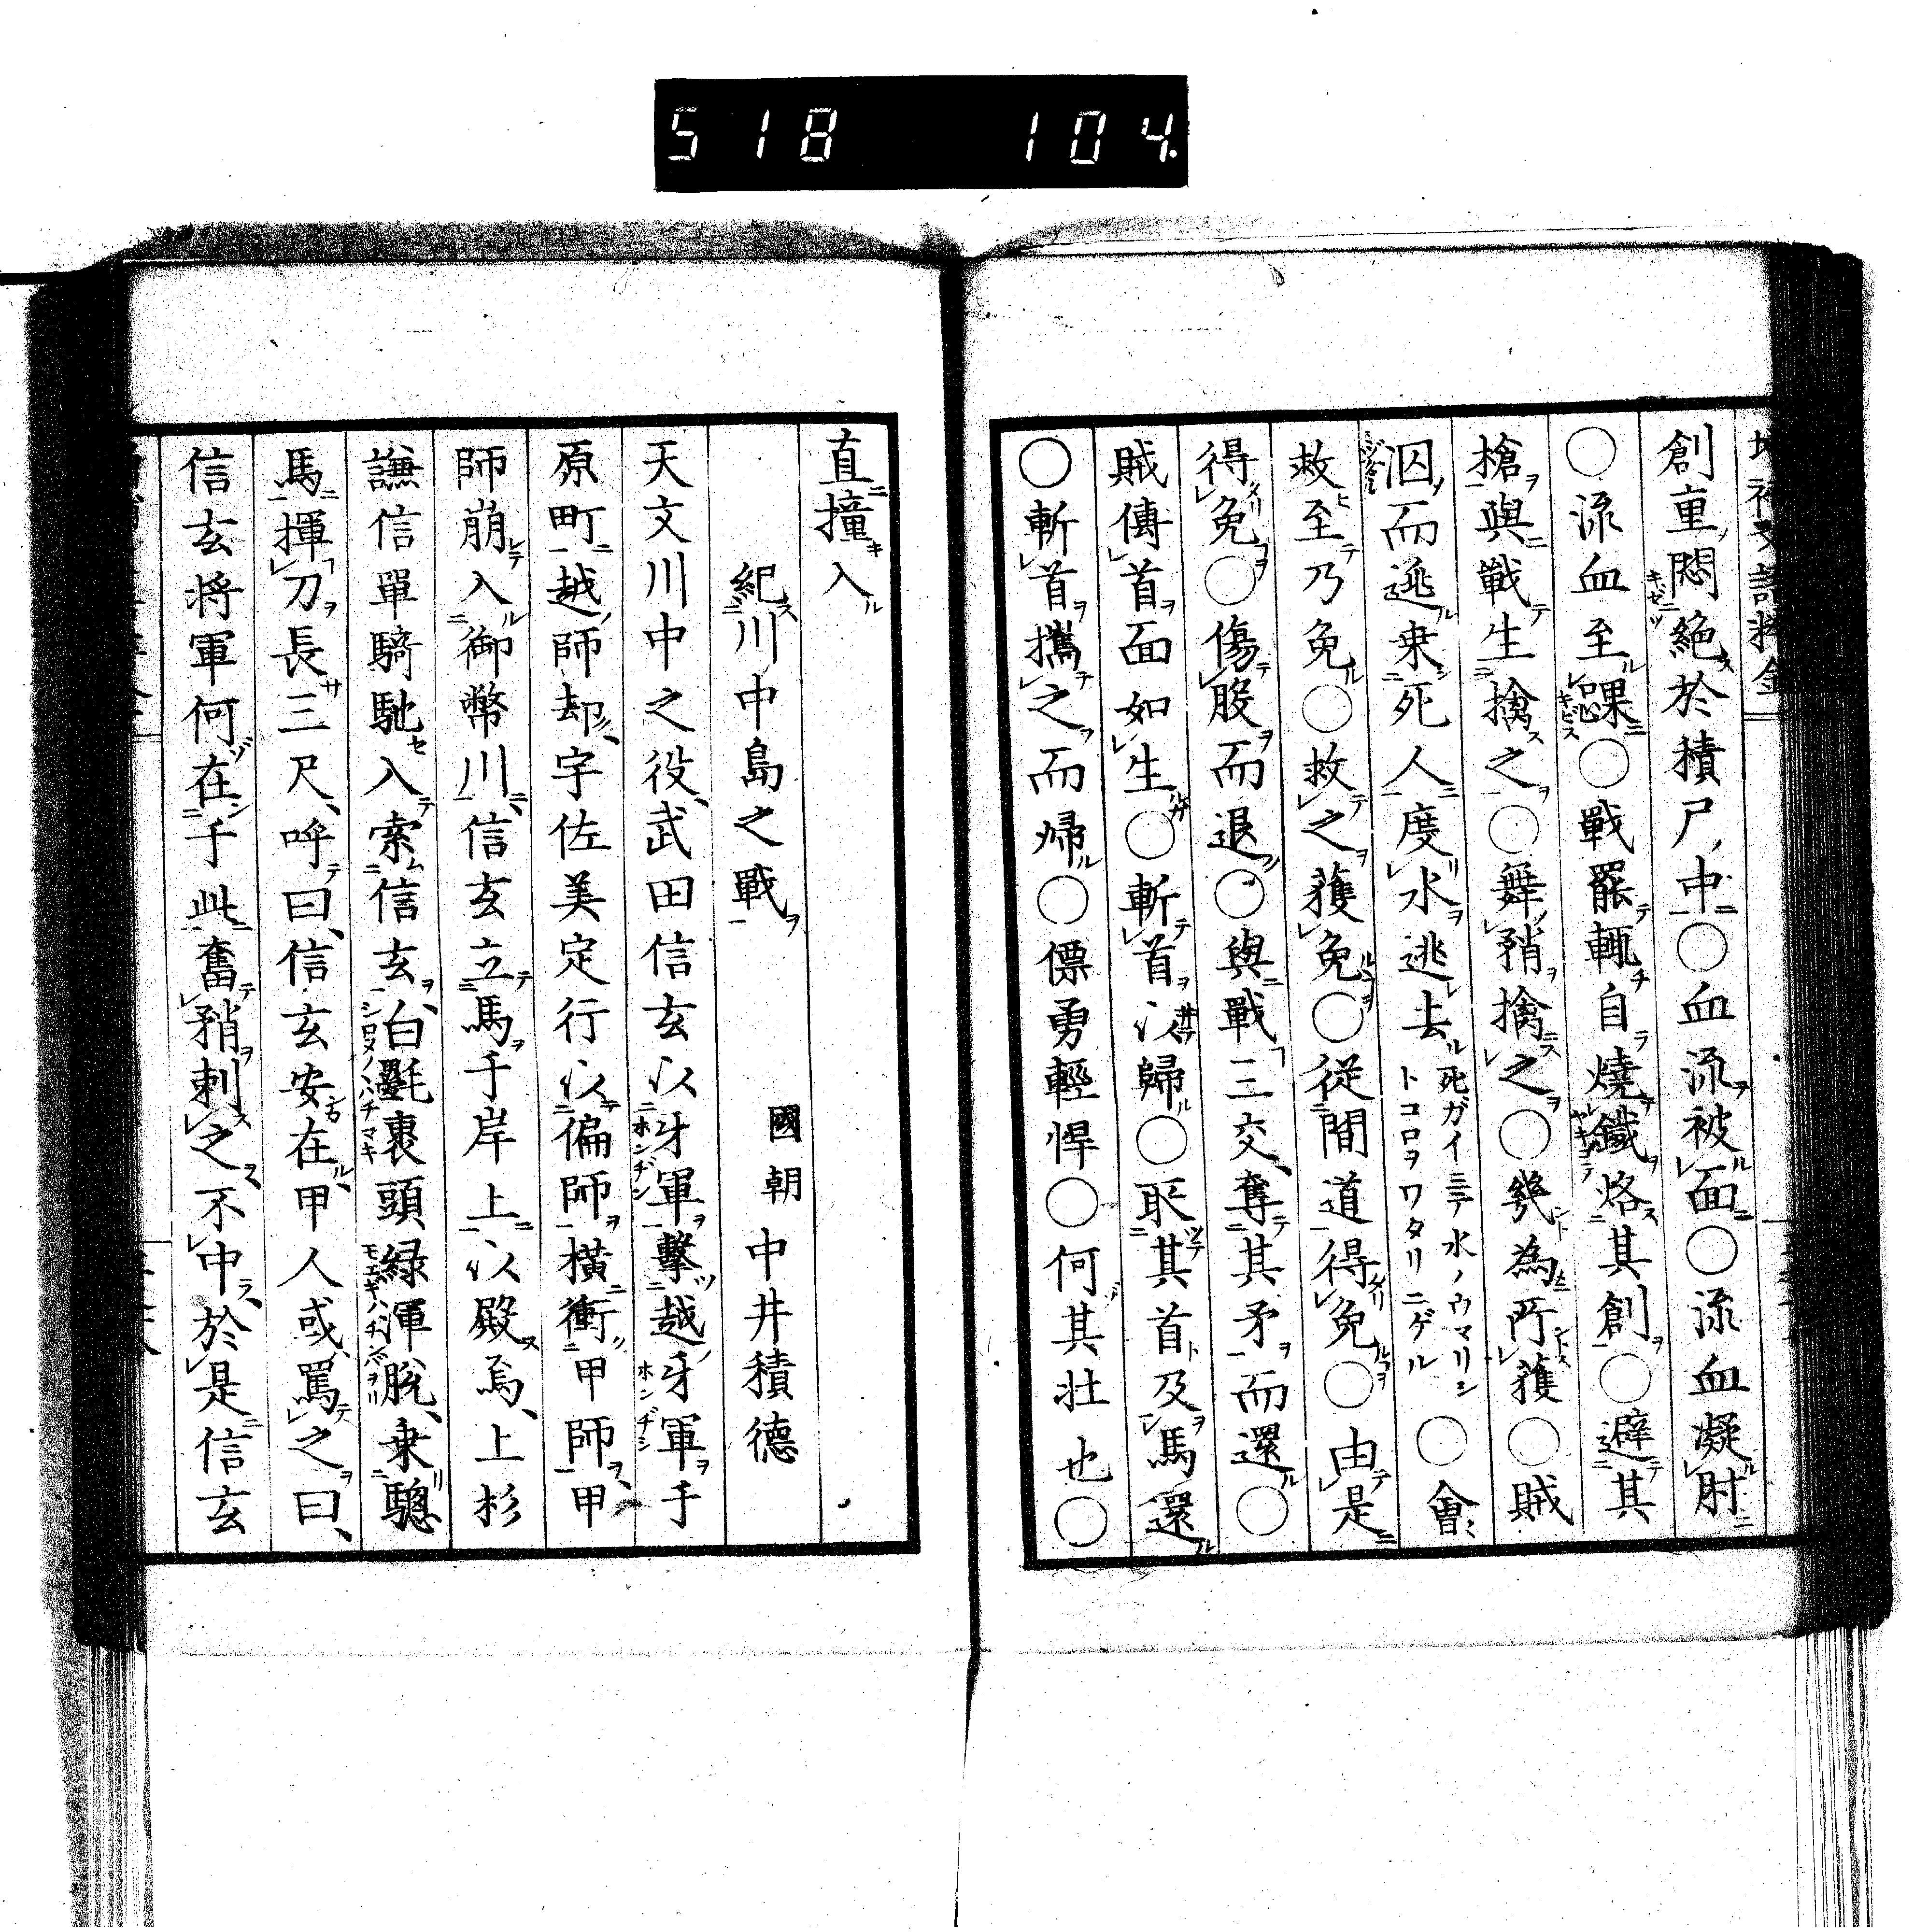 518 104
創重悶絶於積尸中○血流被面○流血凝肘
○流血至踝○戰罷輒自燒鐵烙其創○避其
槍與戰生擒之○舞矟擒之○幾為所獲○賊
泅而逃乗死人度水逃去死ガイニテ水ノウマリシトコロヲワタリニゲル○會
救至乃免○救之獲免○従間道得免○由是
得免○傷股而退○與戰三交奪其矛而還○
賊傳首面如生○斬首以歸○取其首及馬還
○斬首攜之而帰○僄勇輕悍○何其壮也○
直撞入
紀川中島之戰 國朝 中井積德
天文川中之役、武田信玄以牙軍撃越牙軍于
原町越師却、宇佐美定行以偏師横衝甲師、甲
師崩入御幣川、信玄立馬于岸上以殿焉、上杉
謙信單騎馳入索信玄、白氎裹頭、緑㡓脱、乗驄
馬揮刀長三尺、呼曰、信玄安在、甲人或罵之曰、
信玄将軍何在于此奮矟刺之、不中、於是信玄